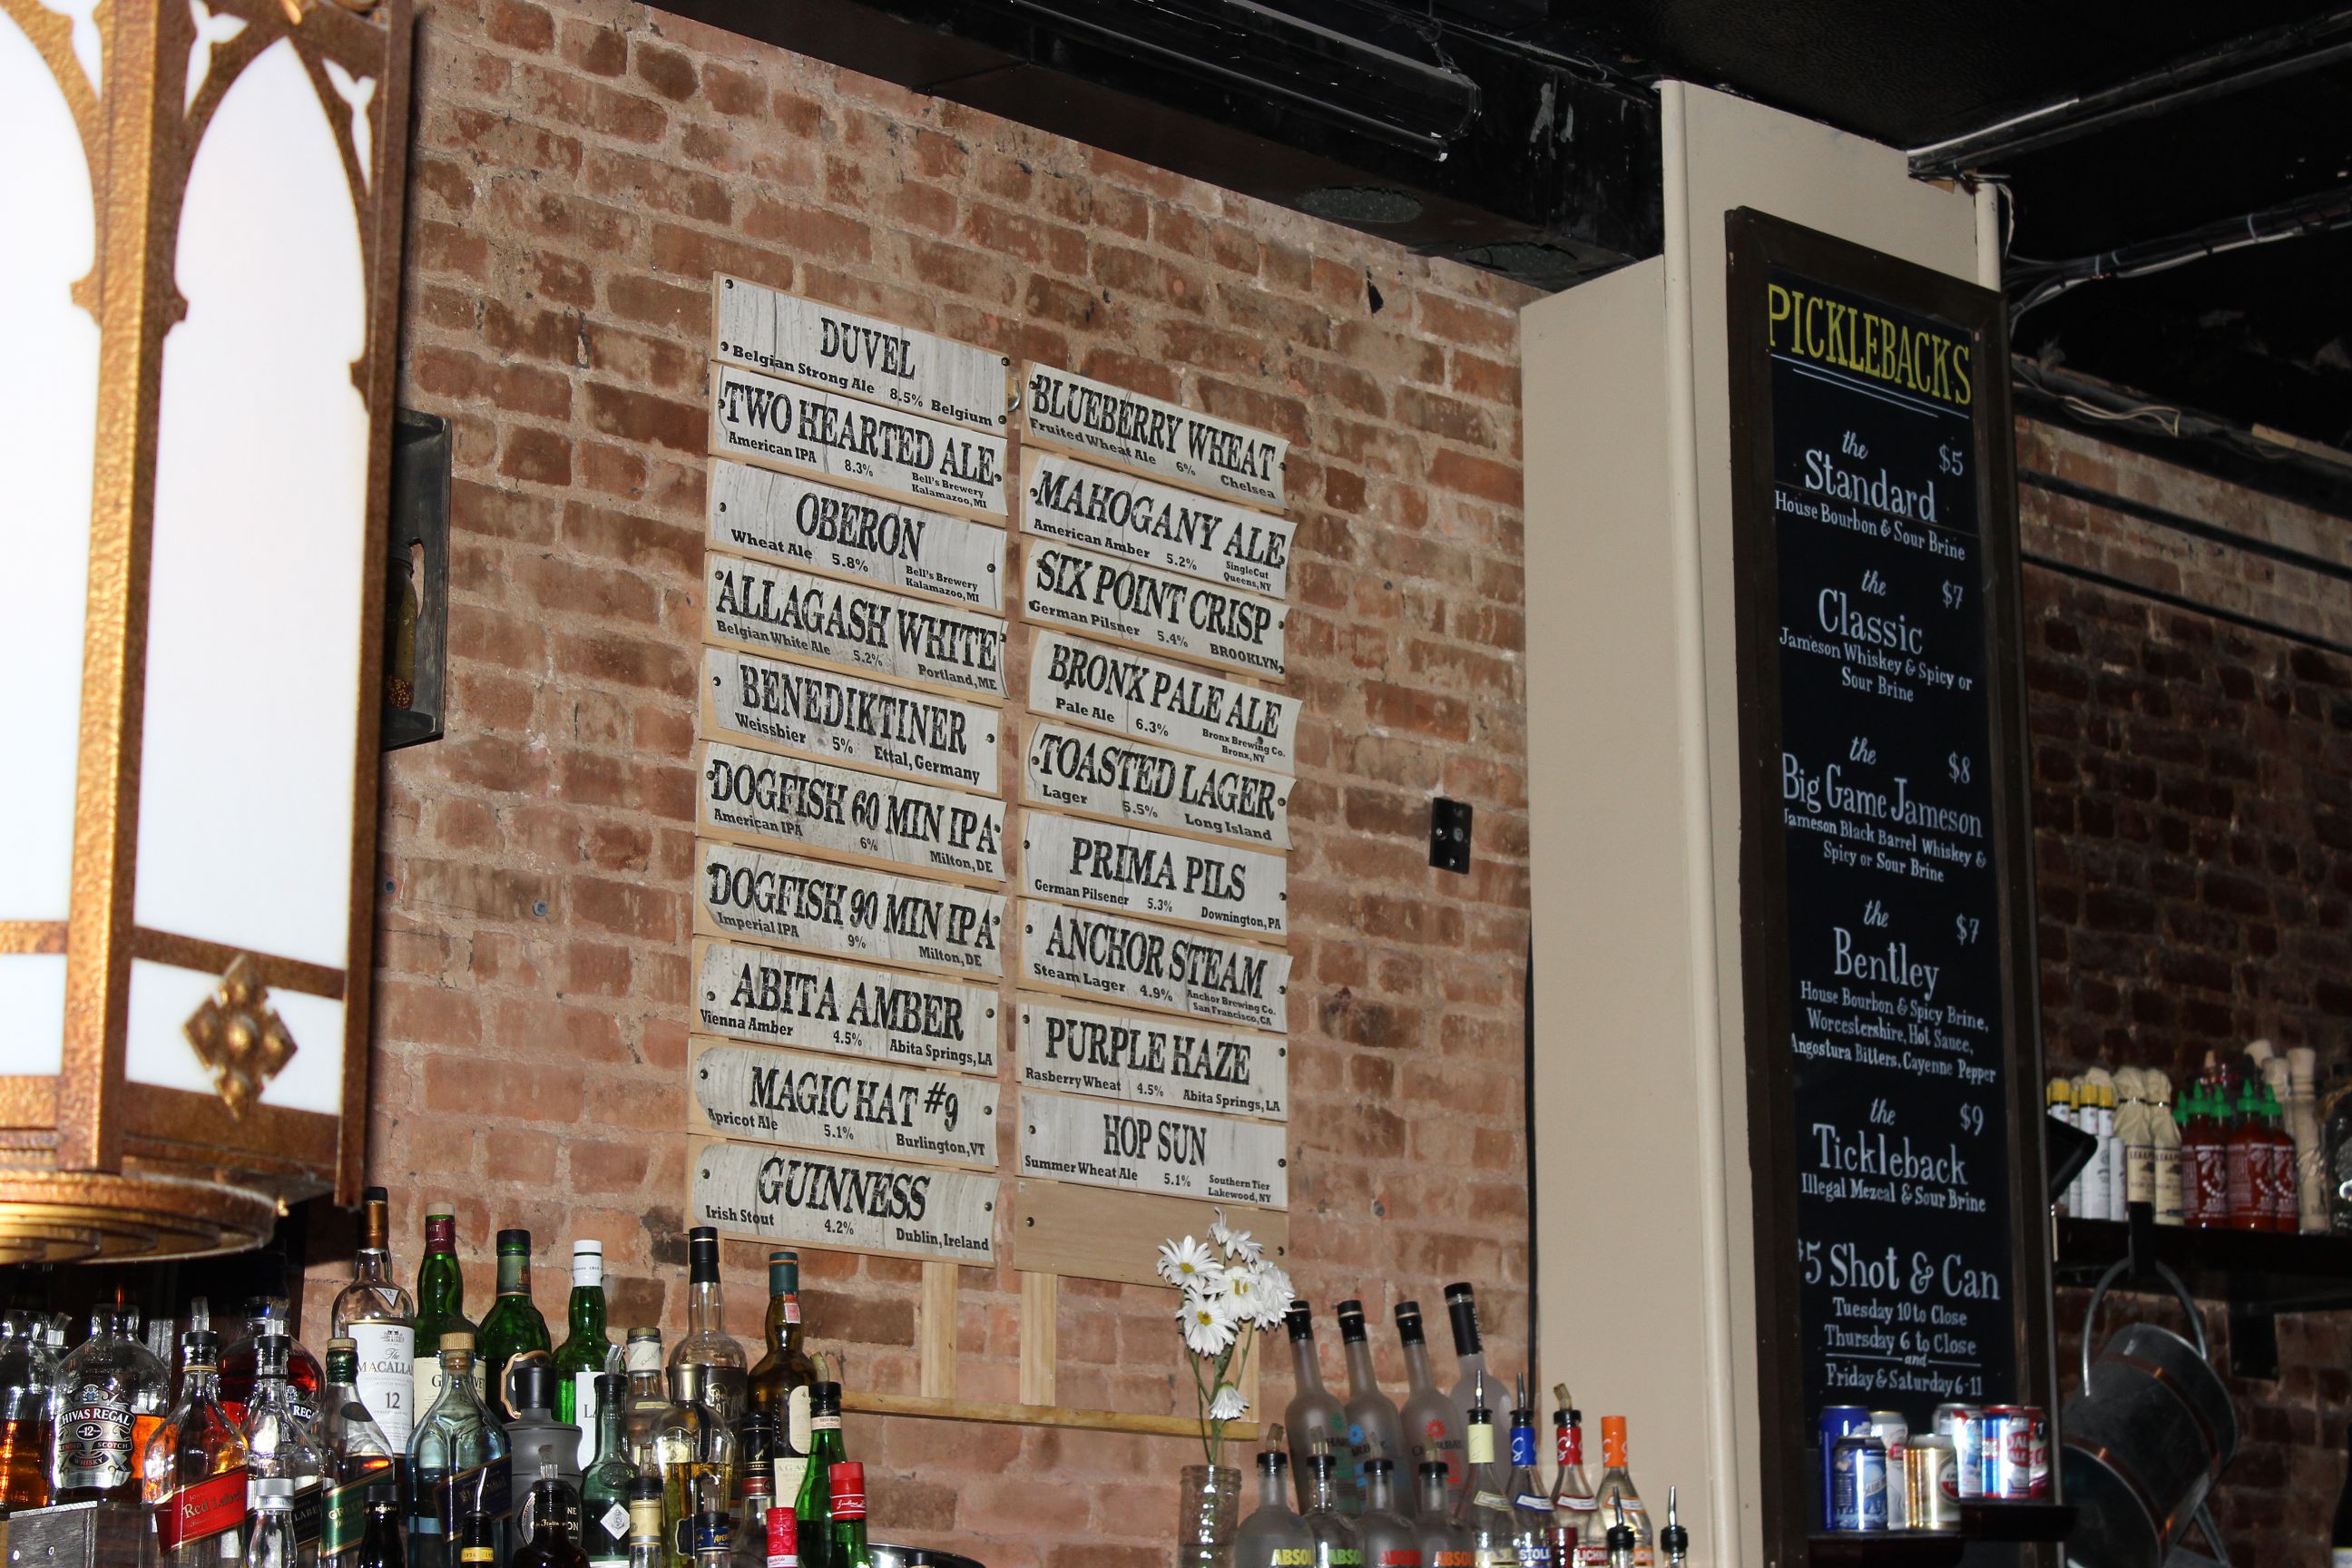 DUVEL
Belgian Strong Ale 8.5% Belgium
TWO HEARTED ALE
American IPA 8.3% Bell's Brewery
Kalamazoo, MI
OBERON
Wheat Ale 5.8% Bell's Brewery
Kalamazoo, MI
ALLAGASH WHITE
Belgian White Ale 5.2% Portland, ME
BENEDIKTINER
Weissbier 5% Ettal, Germany
DOGFISH 60 MIN IPA
American IPA 6% Milton, DE
DOGFISH 90 MIN IPA
Imperial IPA 9% Milton, DE
ABITA AMBER
Vienna Amber 4.5% Abita Springs, LA
MAGIC HAT #9
Apricot Ale 5.1% Burlington, VT
GUINNESS
Irish Stout 4.2% Dublin, Ireland
BLUEBERRY WHEAT
Fruited Wheat Ale 6% Chelsea
MAHOGANY ALE
American Amber 5.2% SingleCut
Queens, NY
SIX POINT CRISP
German Pilsner 5.4% BROOKLYN
BRONX PALE ALE
Pale Ale 6.3% Bronx Brewing Co.
Bronx, NY
TOASTED LAGER
Lager 5.5% Long Island
PRIMA PILS
German Pilsener 5.3% Downington, PA
ANCHOR STEAM
Steam Lager 4.9% Anchor Brewing Co.
San Francisco, CA
PURPLE HAZE
Rasberry Wheat 4.5% Abita Springs, LA
HOP SUN
Summer Wheat Ale 5.1% Southern Tier
Lakewood, NY
PICKLEBACKS
the $5
Standard
House Bourbon & Sour Brine
the $7
Classic
Jameson Whiskey & Spicy or
Sour Brine
the $8
Big Game Jameson
Jameson Black Barrel Whiskey &
Spicy or Sour Brine
the $7
Bentley
House Bourbon & Spicy Brine,
Worcestershire, Hot Sauce,
Angostura Bitters, Cayenne Pepper
the $9
Tickleback
Illegal Mezcal & Sour Brine
$5 Shot & Can
Tuesday 10 to Close
Thursday 6 to Close
and
Friday & Saturday 6-11
The
MACALLA
12
CHIVAS REGAL
12
BLENDED SCOTCH
WHISKY
Red Label
LABEL
GREEN
ABSOL
ABSO
STOLI